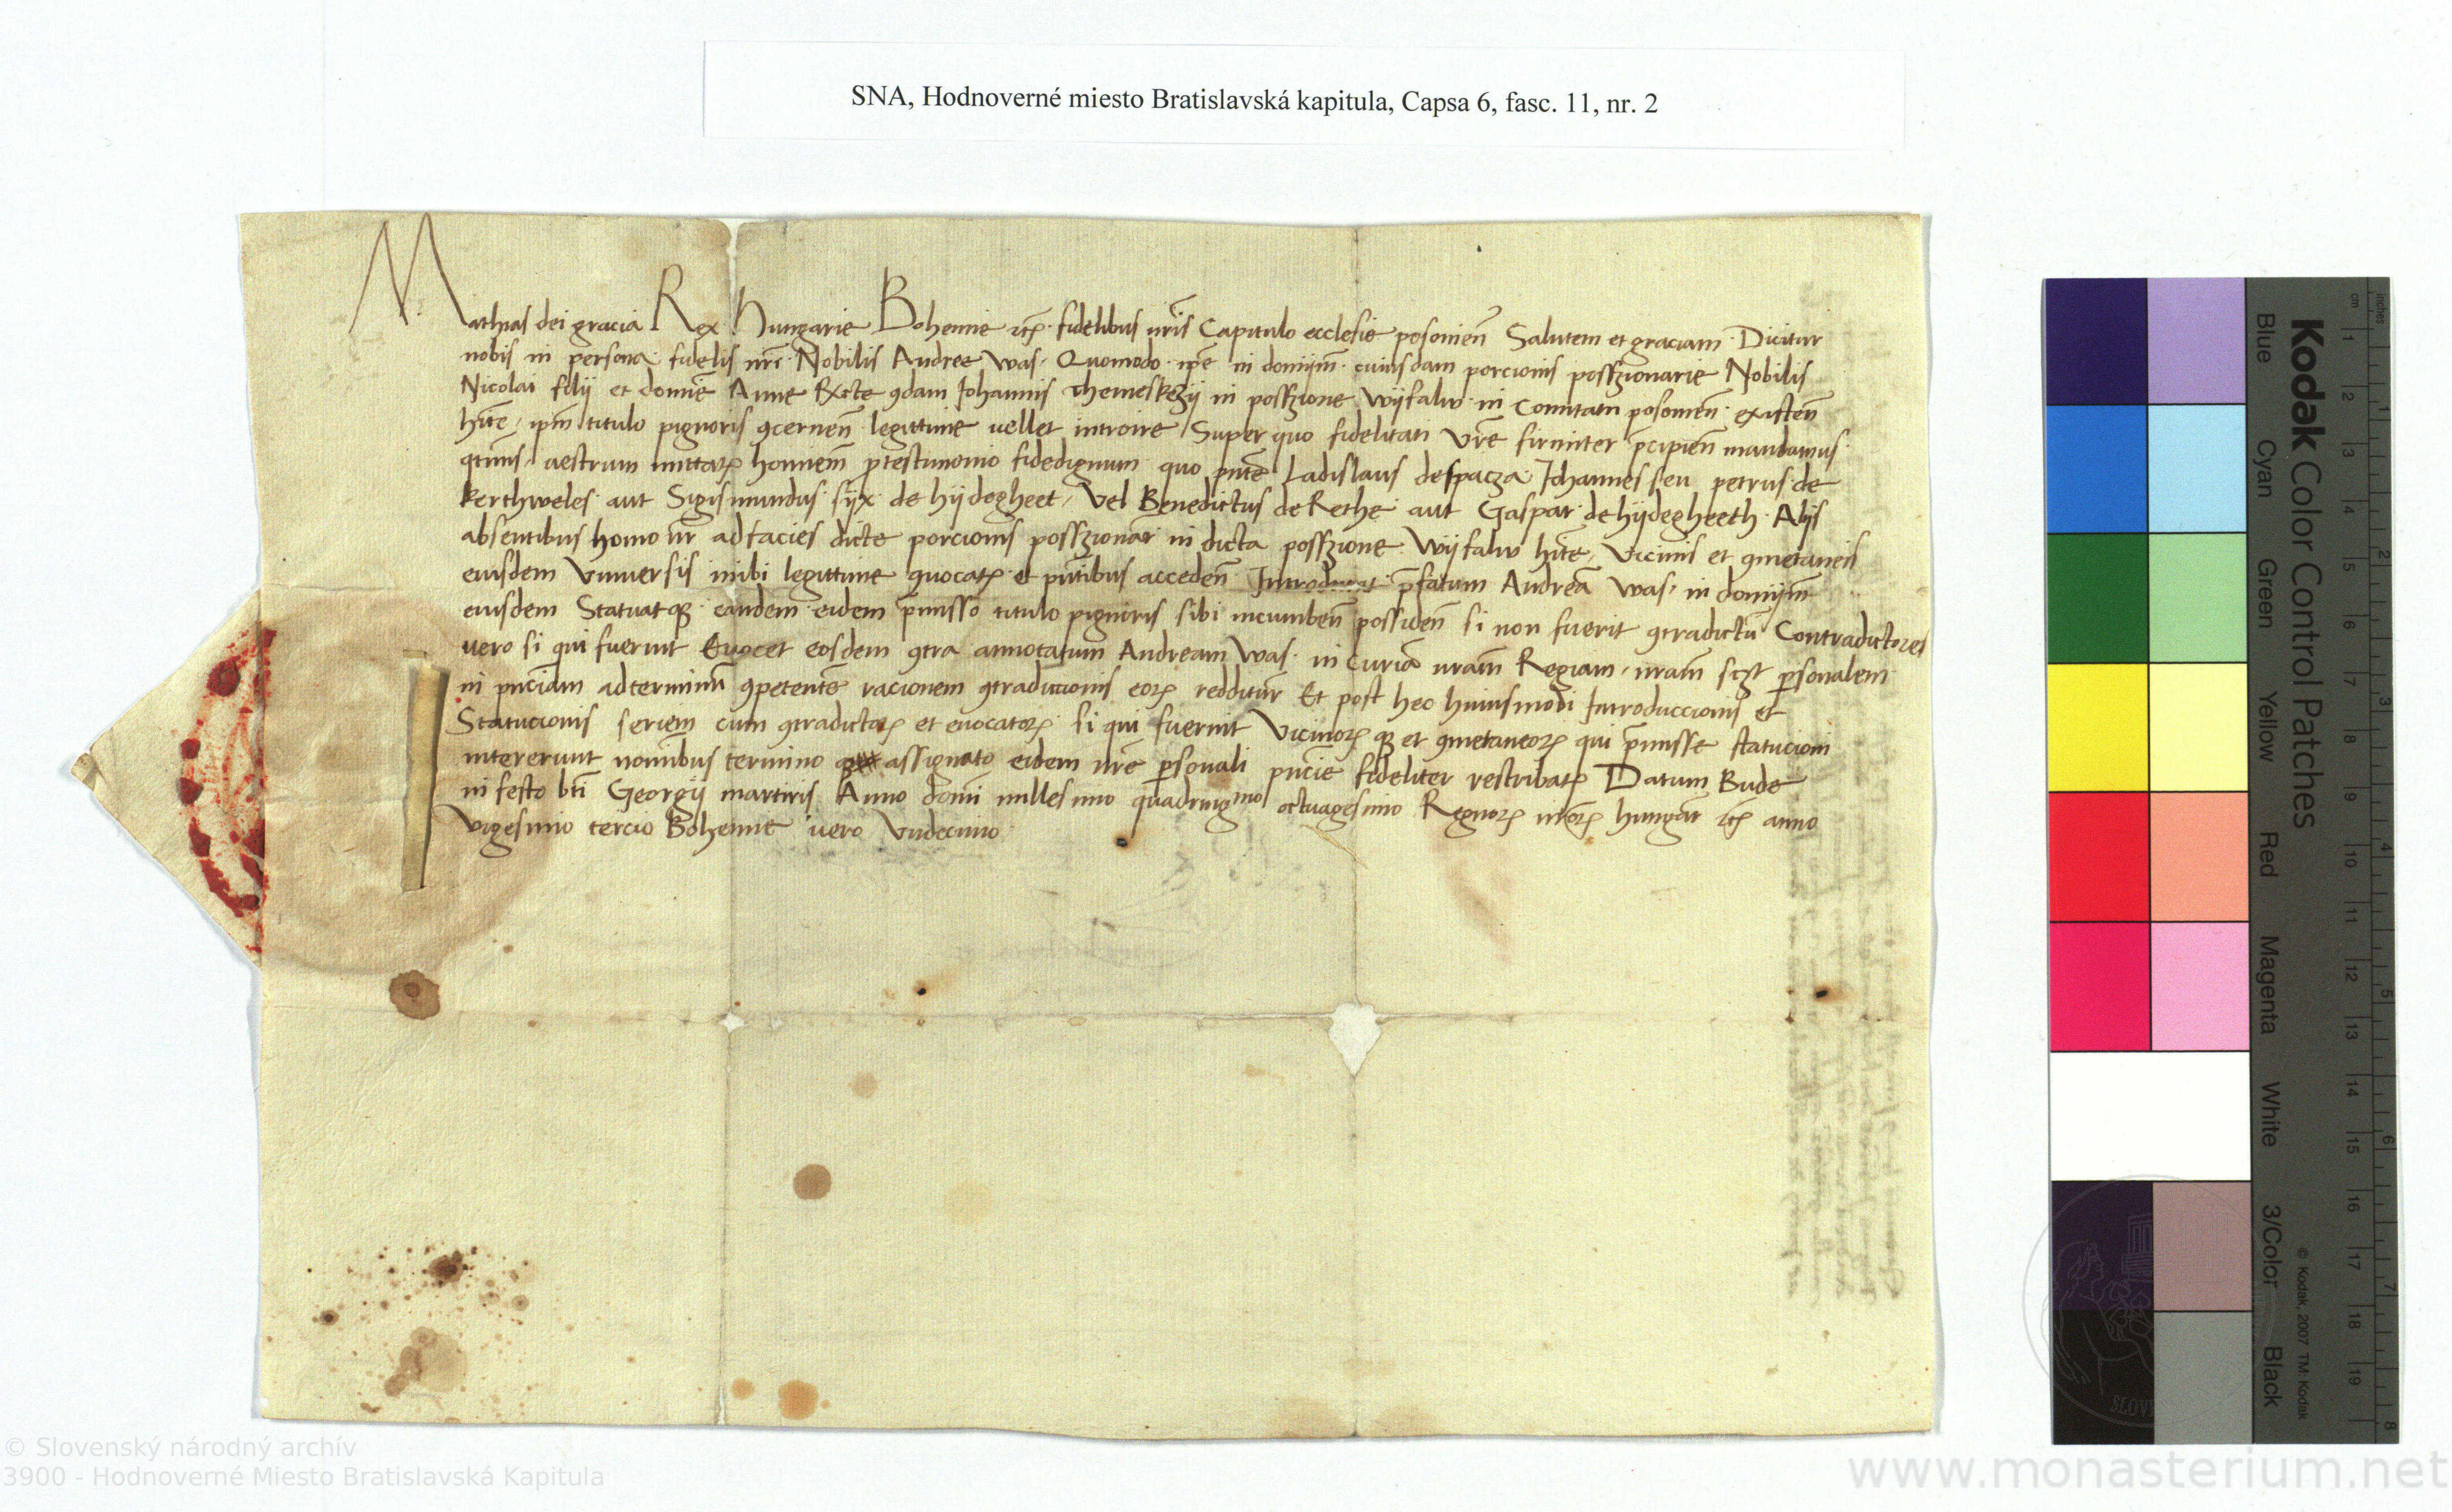 SNA, Hodnoverné miesto Bratislavská kapitula, Capsa 6, fasc. 11, nr. 2
Mathias dei gracia Rex Hungarie Bohemie etc̄ fidelibus nr̄is Capitulo ecclesie posonien̄ Salutem et graciam Dicitur
nobis in persona fidelis nr̄i Nobilis Andree Was. Quomodo ip̄e in domiīm cuiusdam porcionis possessionarie Nobilis
Nicolai filij et domīe Anne Johannis Themeskezij in possessione Wijfalw in Comitatu posonien̄ existen̄
hīte, ip̄m titulo pignoris ꝯcernen̄ legittime vellet introire Super quo fidelitati vr̄e firmiter p̄cipien̄ mandamus
vestrum hominem testimonio fidedignum quo Ladislaus de spacza Johannes seu petrus de
kerthweles aut Sigismundus sijx de hijdegheet, Vel Benedictus de Rethe aut Gaspar de hijdegheeth Alijs
absentibus homo nr̄ ad facies dicte porcionis in dicta possessione Wijfalw hīte, Vicinis et ꝯmetaneis
eiusdem Vniuersis inibi legittime ꝯuocatꝝ et pn̄tibus acceden̄ Introducat p̄fatum Andreā Was, in domiīm
eiusdem Statuatqꝫ eandem eidem p̄misso titulo pignoris sibi incumben̄ possiden̄ si non fuerit ꝯtradictū Contradictores
vero si qui fuerint Euocet eosdem ꝯtra annotatum Andream Was in Curiā nr̄am Regiam, nr̄am sczt p̱sonalem
in pn̄ciam ad terminū ꝯpetentē racionem ꝯtradiccionis eoꝝ redditur̄ Et post hec huiusmodi Introduccionis et
Statucionis seriem cum ꝯtradictoꝝ et euocatoꝝ si qui fuerint Vicinoꝝ qꝫ et ꝯmetaneoꝝ qui p̄misse statucioni
intererunt nomībus termino assignato eidem nr̄e p̱sonali pn̄cie fideliter rescribatꝝ Datum Bude
in festo bt̄i Georgij martiris Anno domī millesimo quadringmo octuagesimo Regnoꝝ nr̄oꝝ hungar̄ etc̄ anno
Vigesimo tercio Bohemie vero Vndecimo
Kodak Color Control Patches
Blue Cyan Green Yellow Red Magenta White 3/Color Black
© Kodak, 2007 TM: Kodak
cm 1 2 3 4 5 6 7 8 9 10 11 12 13 14 15 16 17 18 19
inches 1 2 3 4 5 6 7 8
© Slovenský národný archív
3900 - Hodnoverné Miesto Bratislavská Kapitula
www.monasterium.net